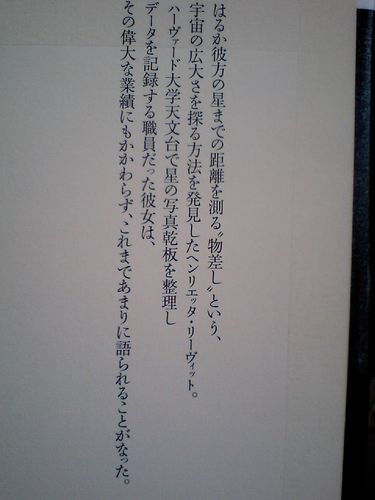 はるか彼方の星までの距離を測る〝物差し〟という、
宇宙の広大さを探る方法を発見したヘンリエッタ・リーヴィット。
ハーヴァード大学天文台で星の写真乾板を整理し
データを記録する職員だった彼女は、
その偉大な業績にもかかわらず、これまであまりに語られることがなった。